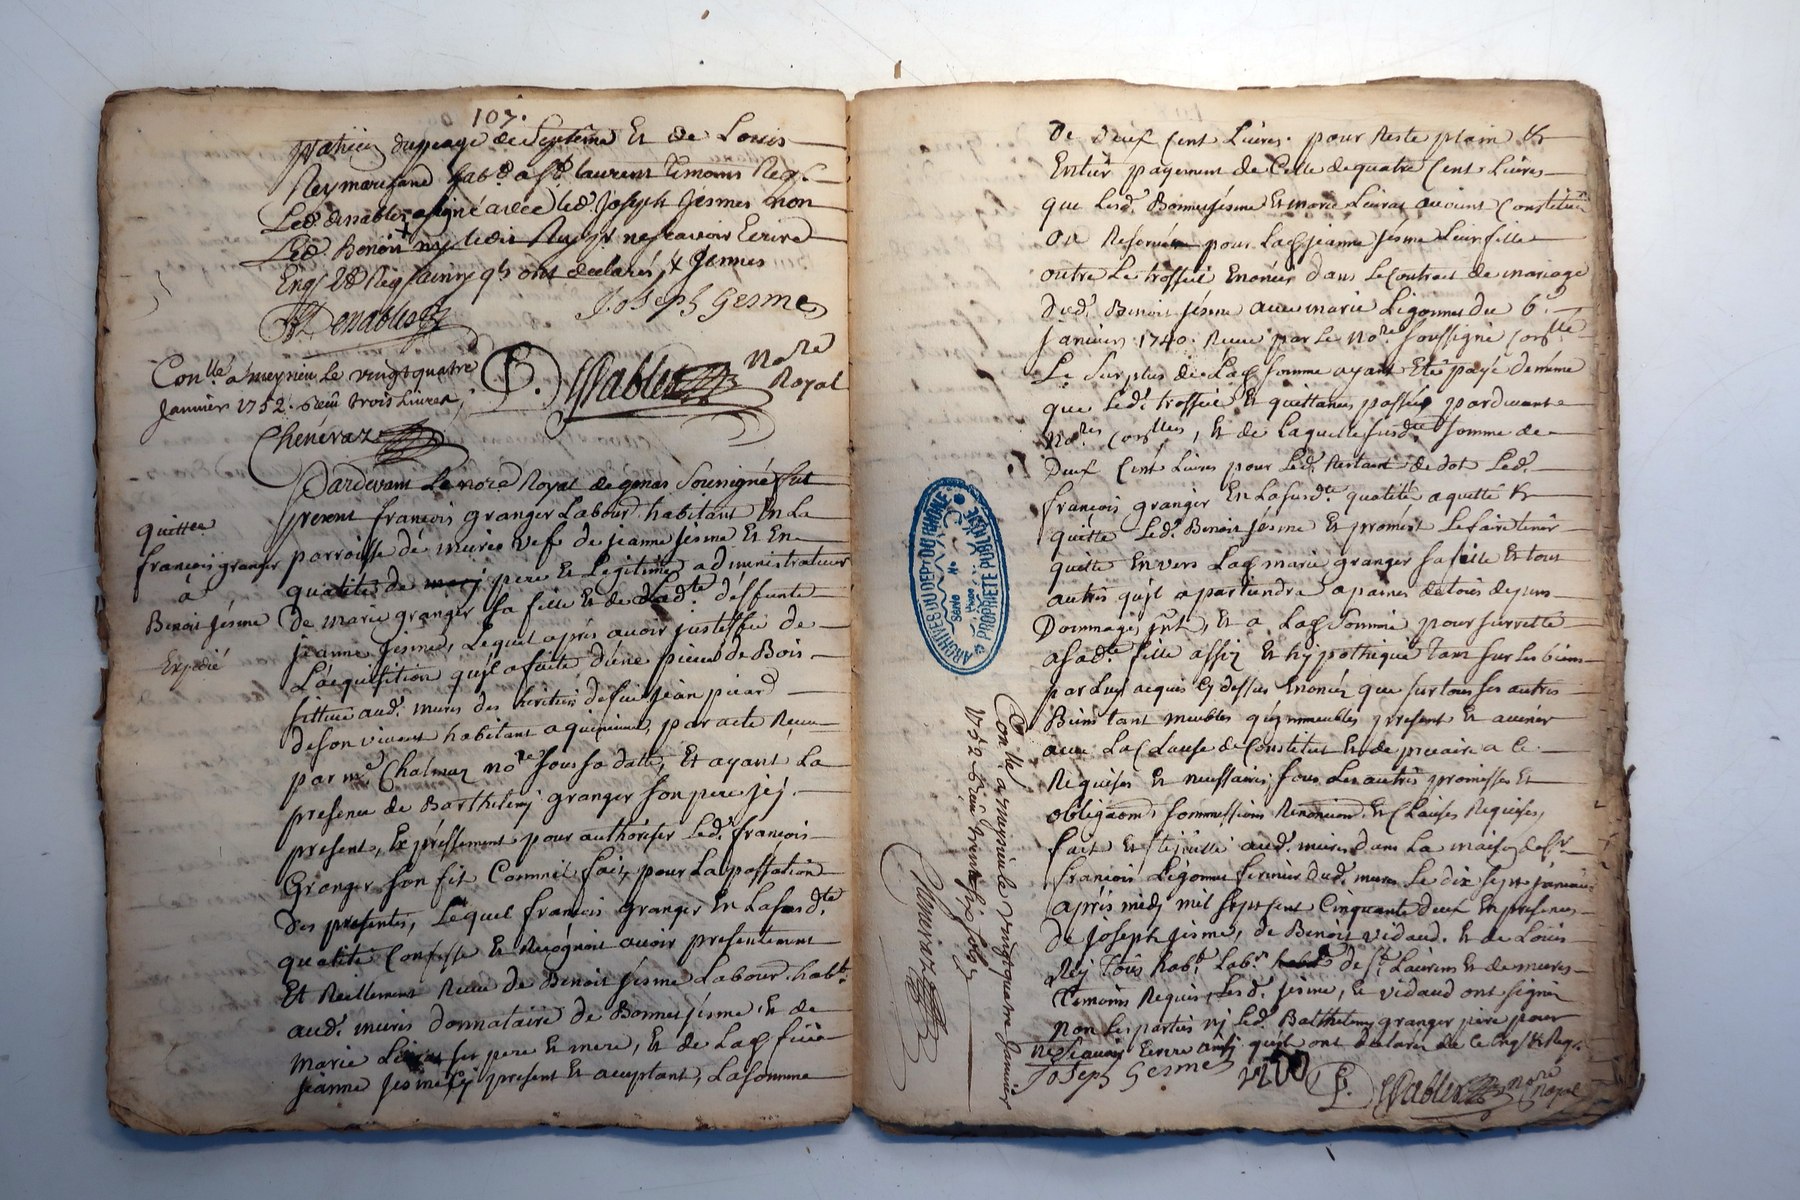 107.
du péage de Septême Et de Louis
Rey marchand hab.t a St. laurent temoins Req.s
Led. denables a signé avec led. Joseph Jésmes non
Led. Benoit ny ledit Rey pr ne scavoir Ecrire
Enq.s Et Req.s ainsy qls ont declarés, x Jesmes
Joseph Gesme
Denables
Con.llé a meyrieu Le vingt quatre
Janvier 1752. Reçu trois Livres,
Cheneraz
Dnables no.re Royal
Pardevant Le no.re Royal de genas Soussigné fut
present françois granger Labour. habitant En La
quittce
françois granger
a
Benoit Jésme
Expedié
parroisse de mures vef de jeanne jésme Et En
qualité de pere Et Legitime administrateur
de marie granger sa fille Et de lad.te deffunte
jeanne jesme, Lequel aprés avoir justiffié de
L'acquisition qu'jl a faite d'une piece de Bois
sittuée aud. mures des heritiers de feu jean picard
de son vivant habitant a par acte Reçu
par m.e Chalmaz no.re sous sa datte, Et ayant La
presence de Barthelemy granger son pere jcy
present, Expréssement pour authoriser Led. françois
Granger son fils Comme il fait pour La passation
des presentes, Lequel françois granger En La susd.te
qualité Confesse Et Recognoit avoir presentement
Et Réellement Reçu de Benoit jésme Labour. hab.t
aud. mures donnataire de Bonnet jésme Et de
marie Livras ses pere Et mere, Et de Laq. feüe
jeanne jesme jcy present Et acceptant, La somme
de deux Cent Livres. pour Reste plain Et
Entier payement de Celle de quatre Cent Livres
que Lesd. Bonnet jésme Et marie Livras avoient Constitué
ou Reservée pour Laq. jeanne jesme Leur fille
outre Le trossel Enoncé dans Le Contract de mariage
dud. Benoit jésme avec marie Ligonnet du 6.e
janvier 1740. Receu par Le No.re soussigné Con.llé
Le surplus de Laq. somme ayant Eté payé de méme
que Led. trossel Et quittances passées pardevant
No.res Con.llées, Et de Laquelle susd.te somme de
deux Cent Livres pour Led. Restant de dot Led.
françois granger En La susd.te qualité a quitté Et
quitte Led. Benoit jésme Et promet Le faire tenir
quitte Envers Laq. marie granger sa fille Et tous
autres qu'jl apartiendra a peines de tous depens
Dommages jnt.s, Et a Laq. somme pour seurette
a sad.te fille assis Et hypothéqué tant sur Les biens
par Luy acquis Cy dessus Enoncés que sur tous ses autres
Biens tant meubles qu'jmmeubles present Et avenir
avec La Clause de Constitut Et de precaire a Ce
Requises Et necessaires, sous Les autres promesses Et
obligaons, sommissions Renoncions Et Clauses Requises,
fait Et stipullé aud. mures dans La maison de Sr.
françois Ligonnet fermier dud. mures Le dix sept janvier
aprés midy mil sept cent Cinquante deux En presence
de Joseph jésme, de Benoit vidaud. Et de Louis
Rey tous hab.t Lab.r de St. Laurens Et de mures
temoins Requis, Lesd. jésme, Et vidaud ont signés
non Les parties ny Led. Barthelemy granger pere pour
ne sçavoir Ecrire ainsy qu'jls ont declarés de ce Enq.s Et Req.s
Joseph Gesme
Dnables no.re Royal
Con.llé a meyrieu Le vingt quatre Janvier
1752 Reçu trente six sols
Cheneraz
ARCHIVES DU DEPT DU RHÔNE
PROPRIÉTÉ PUBLIQUE